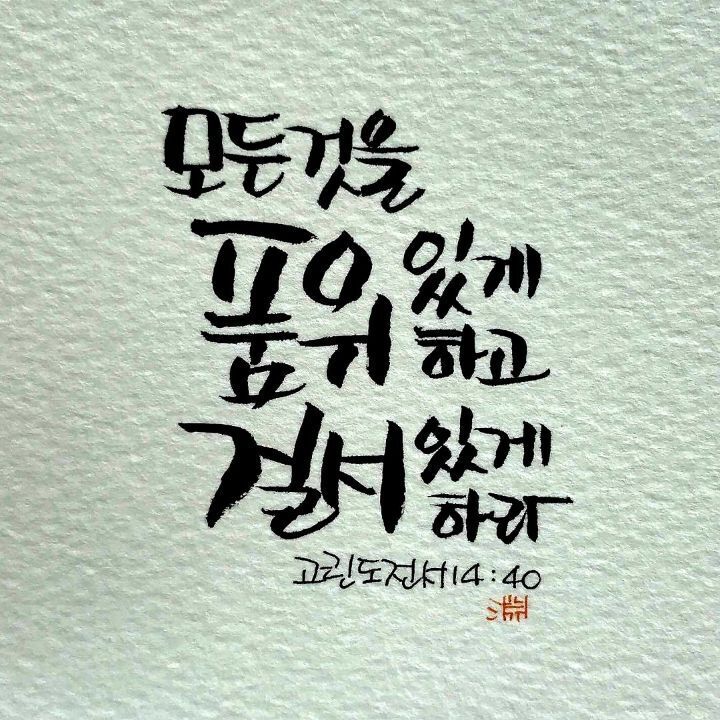 모든것을
품위 있게
하고
질서 있게
하라
고린도전서14:40